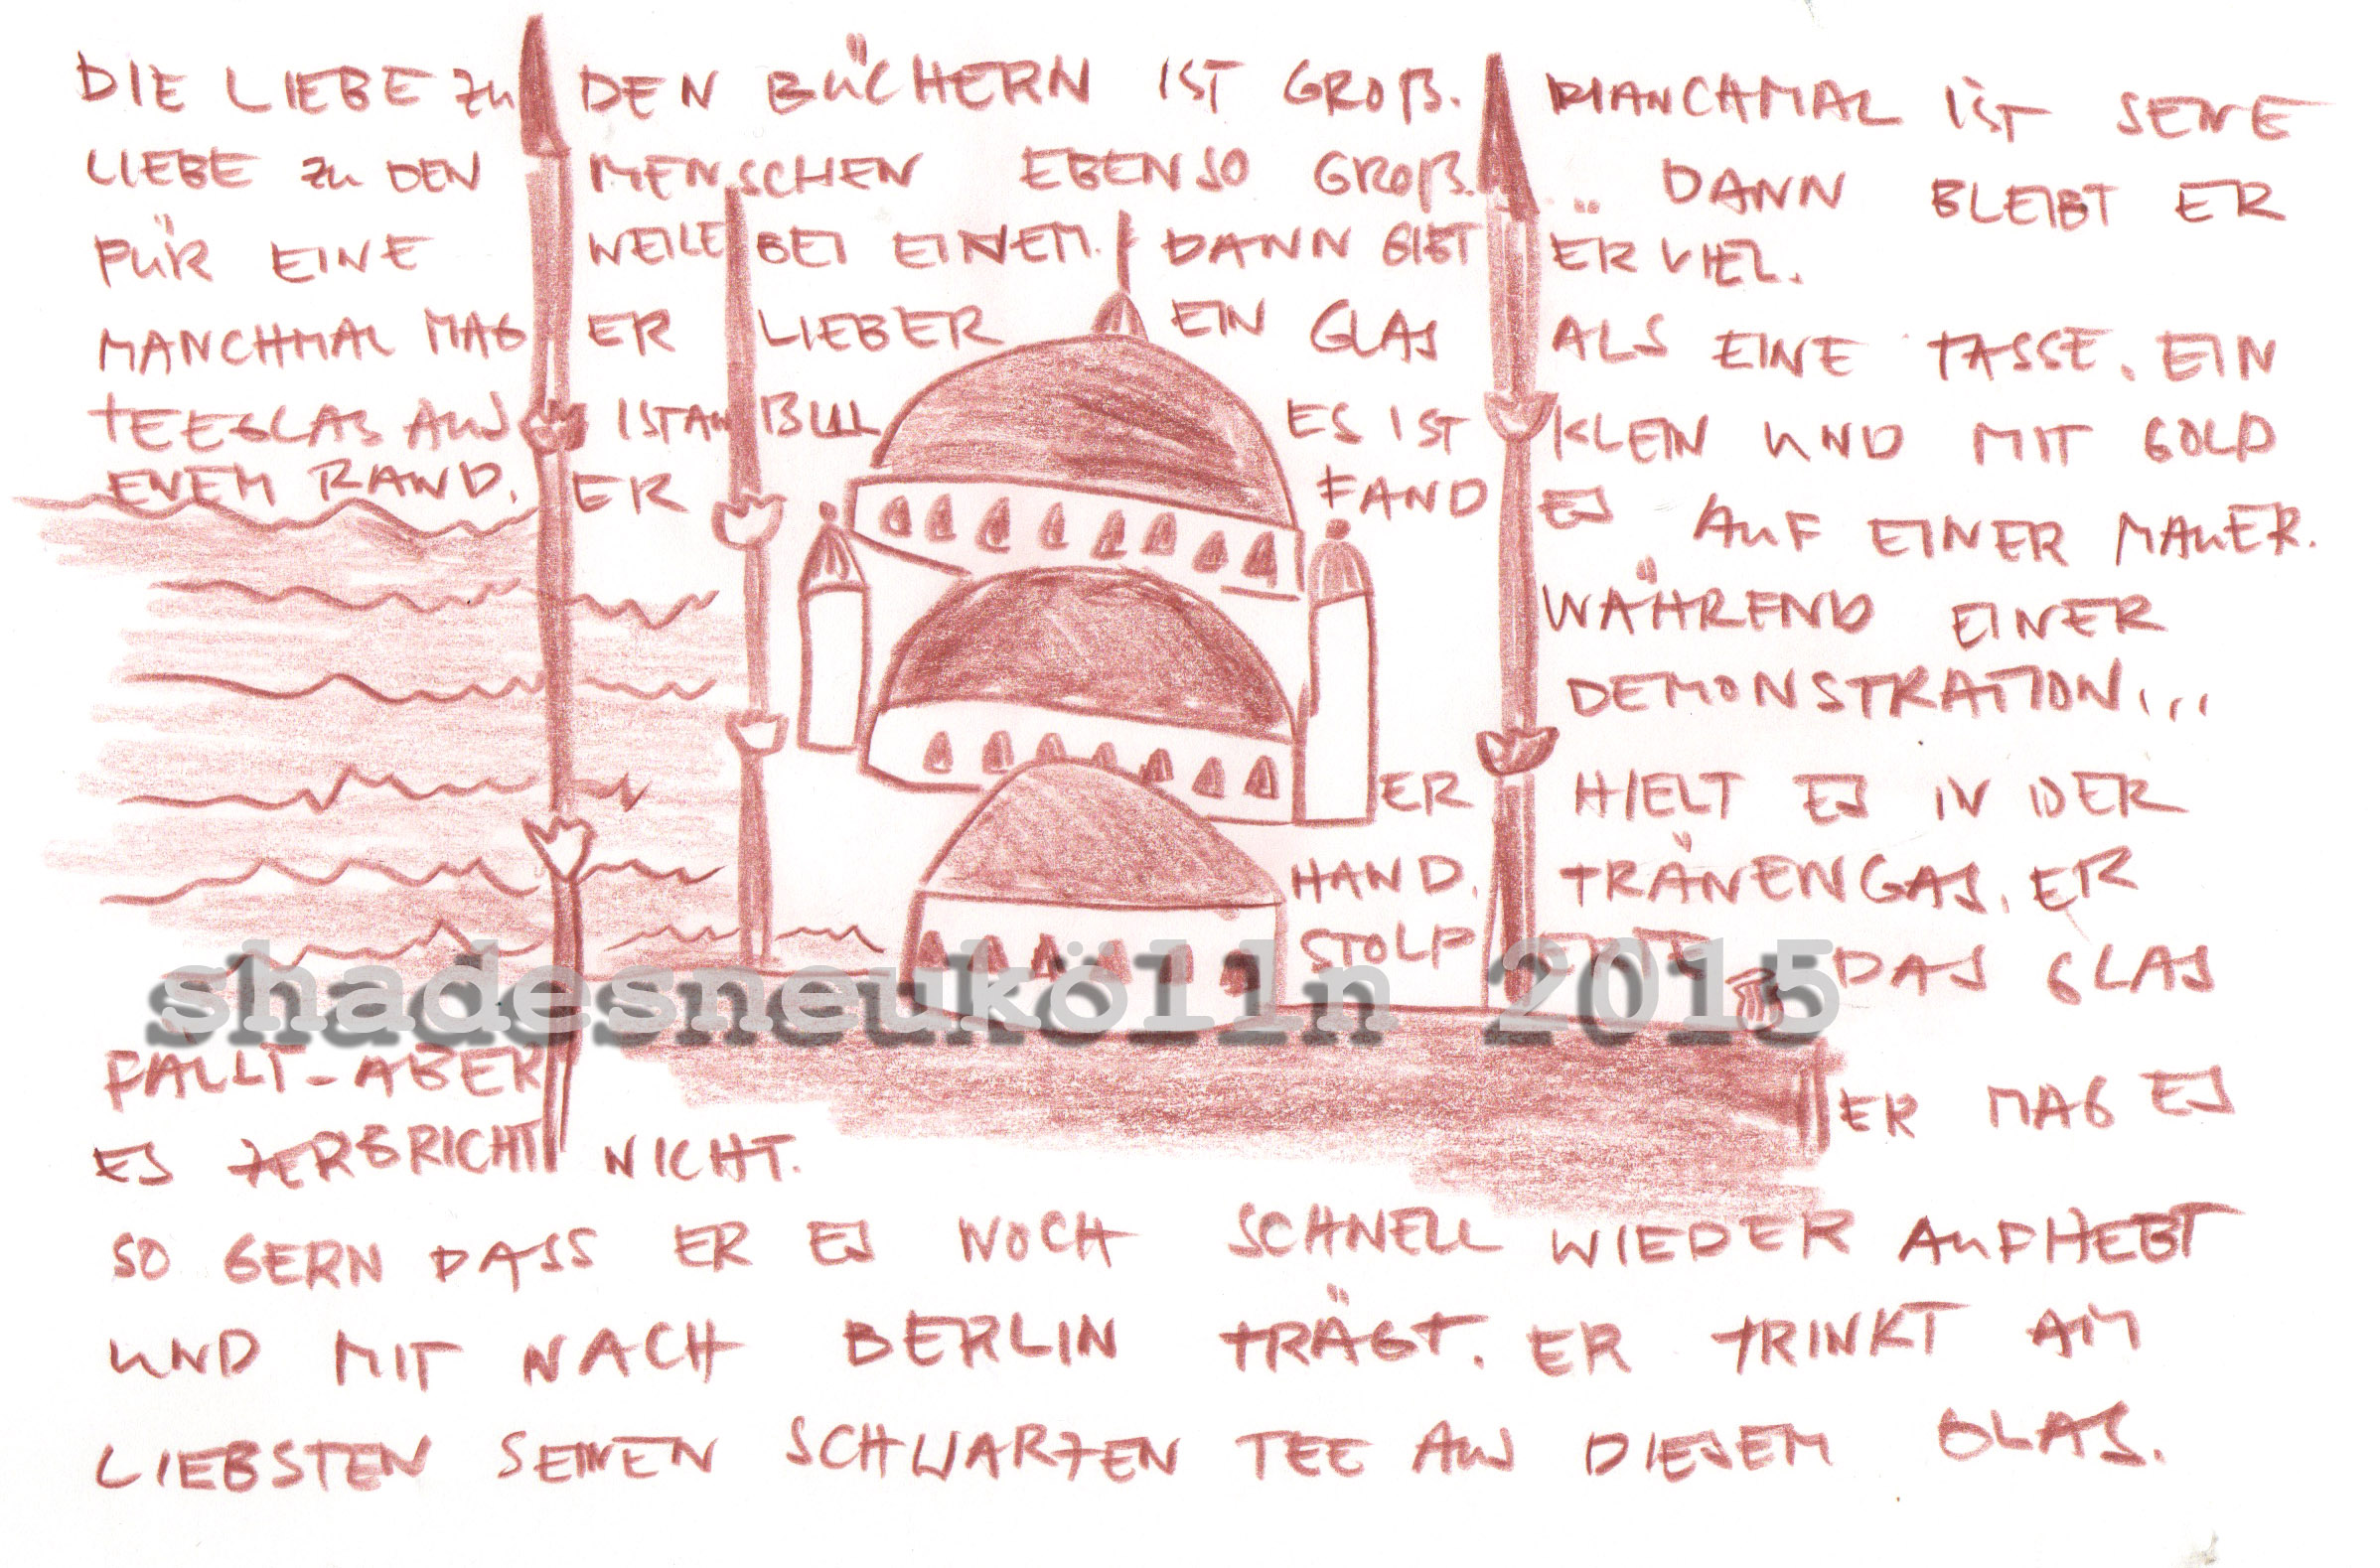 DIE LIEBE ZU DEN BÜCHERN IST GROß. MANCHMAL IST SEINE
LIEBE ZU DEN MENSCHEN EBENSO GROß... DANN BLEIBT ER
FÜR EINE WEILE BEI EINEM. DANN GIBT ER VIEL.
MANCHMAL MAG ER LIEBER EIN GLAS ALS EINE TASSE. EIN
TEEGLAS AUS ISTANBUL ES IST KLEIN UND MIT GOLD
ENEM RAND. ER FAND ES AUF EINER MAUER.
WÄHREND EINER
DEMONSTRATION...
ER HIELT ES IN DER
HAND. TRÄNENGAS. ER
STOLPERTE DAS GLAS
shadesneukölln 2015
FÄLLT-ABER ER MAG ES
ES ZERBRICHT NICHT.
SO GERN DASS ER ES NOCH SCHNELL WIEDER AUFHEBT
UND MIT NACH BERLIN TRÄGT. ER TRINKT AM
LIEBSTEN SEINEN SCHWARZEN TEE AUS DIESEM GLAS.